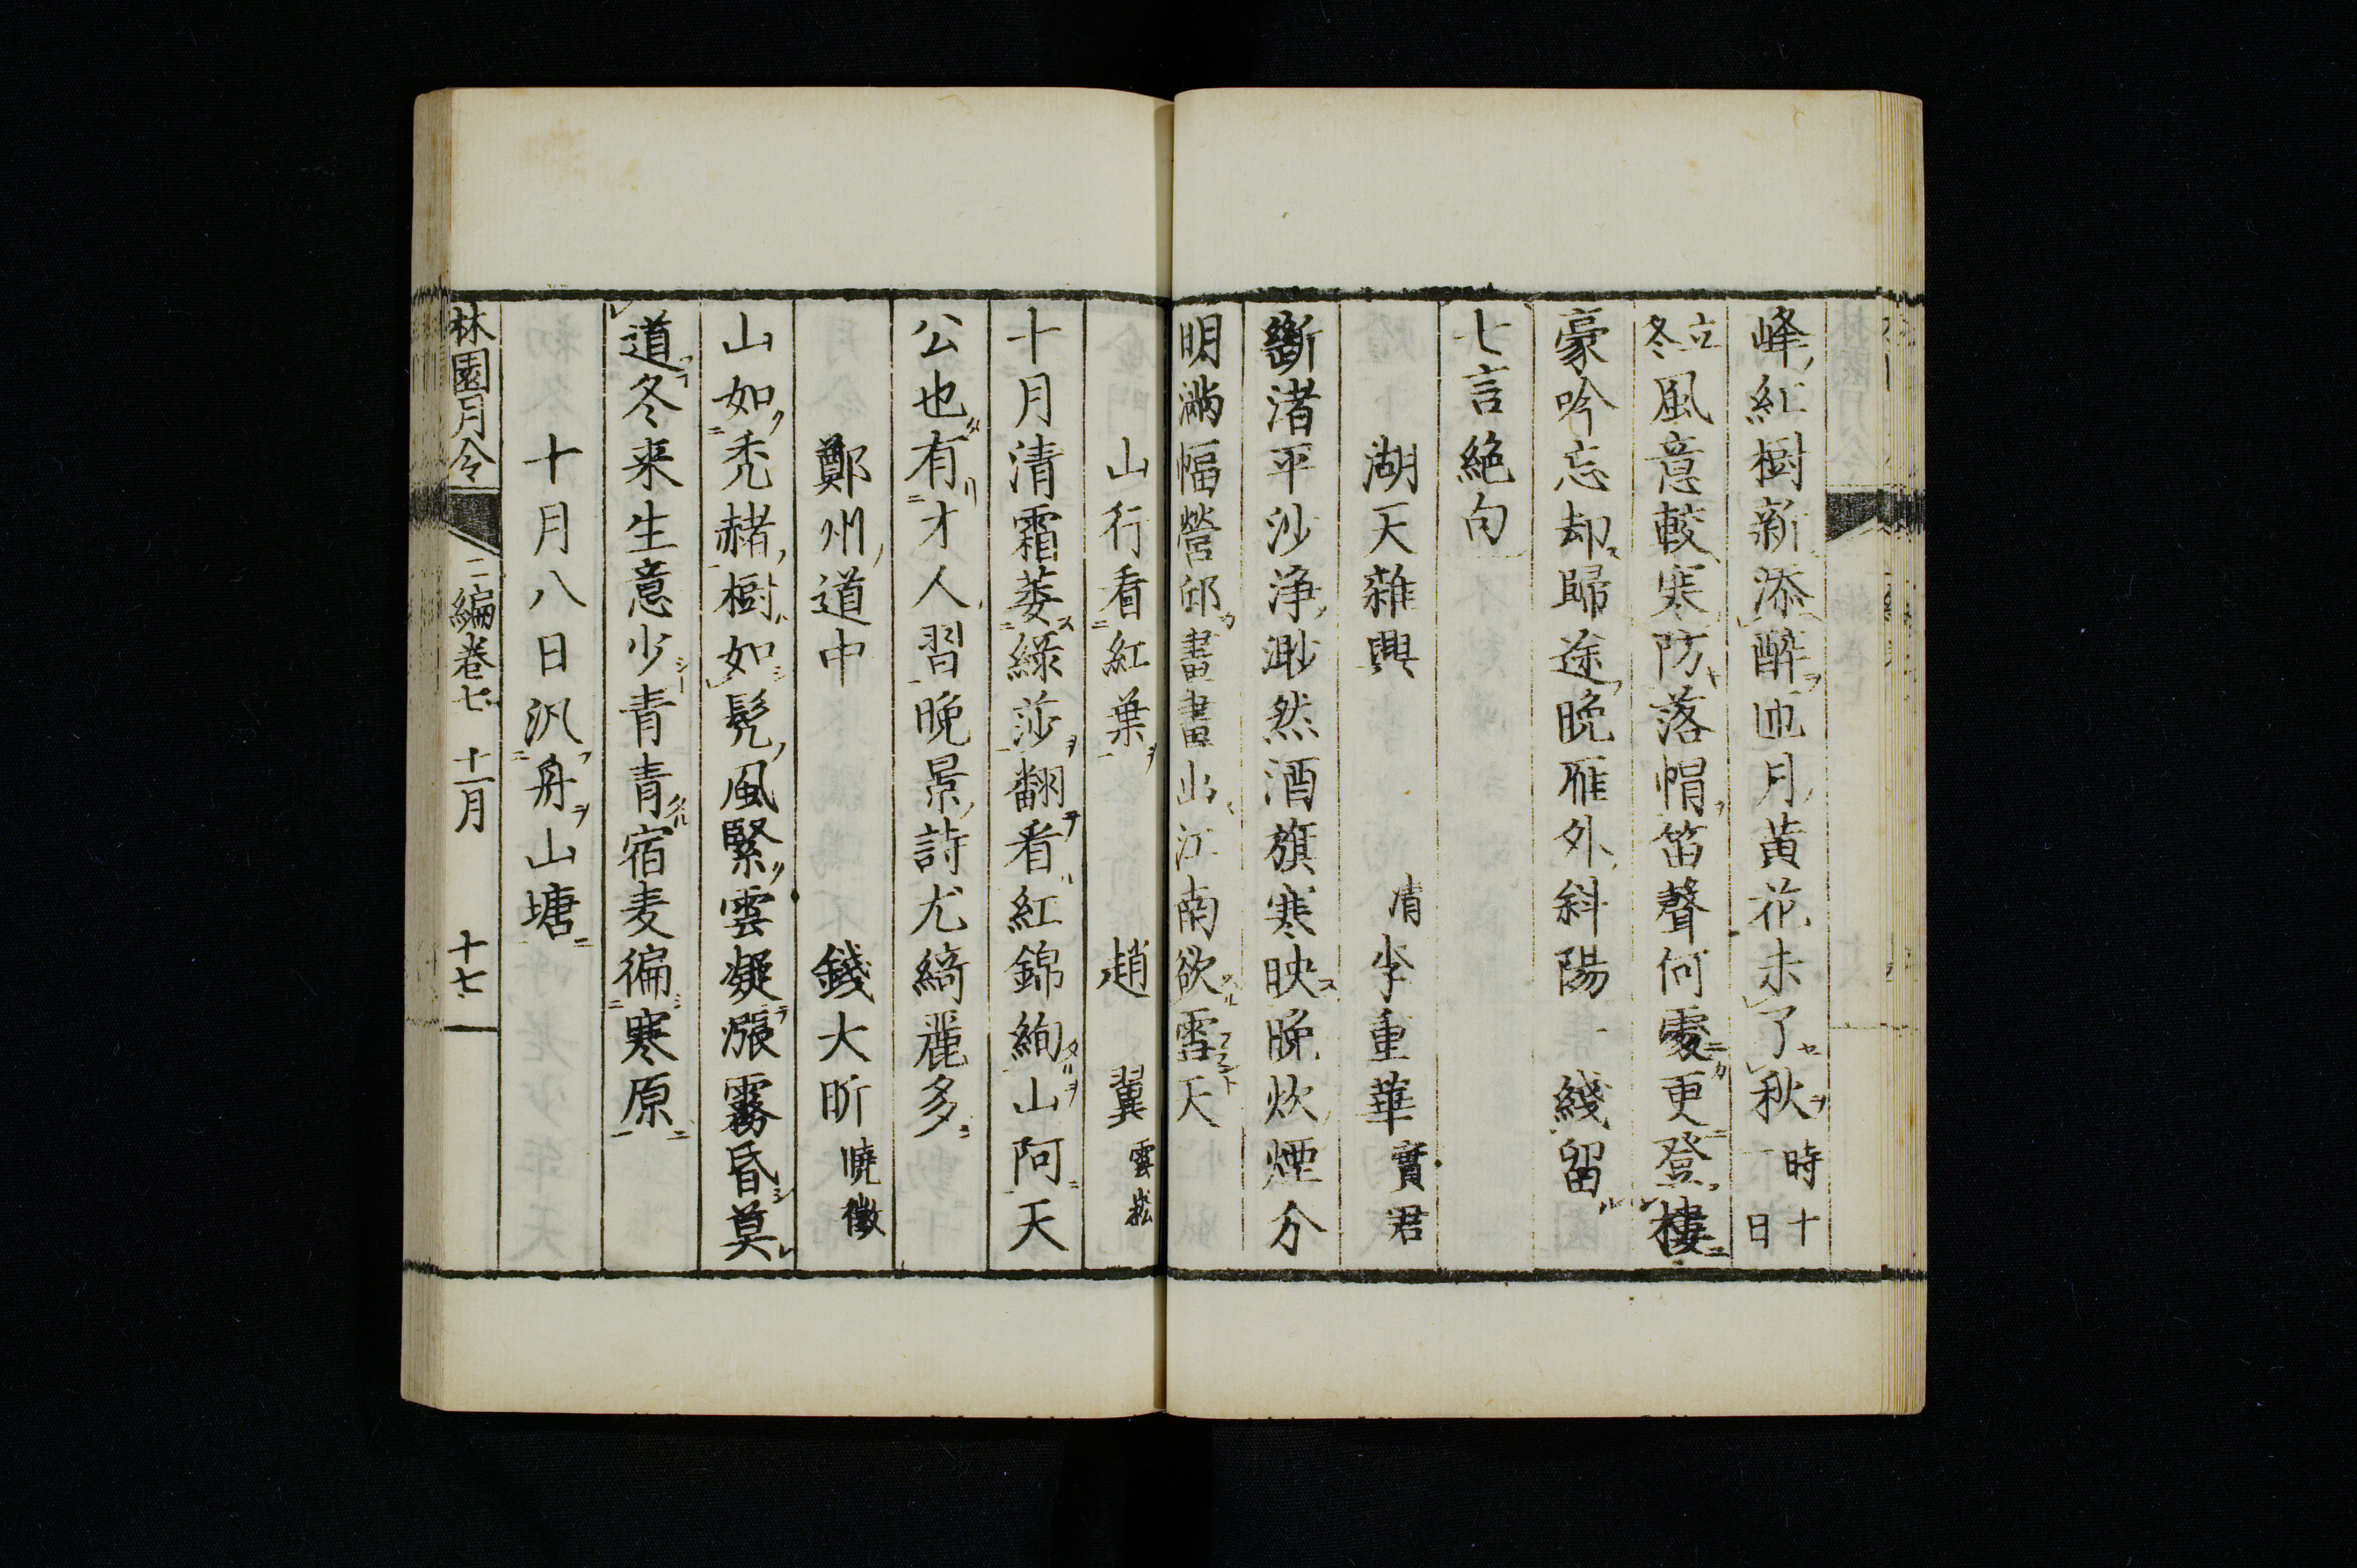 峰紅樹新添醉四月黄花未了秋時十日
立冬風意較寒防落帽笛聲何處更登樓
豪吟忘却歸途晩雁外斜陽一綫留
七言絶句
湖天雜興 清李重華實君
斷渚平沙浄渺然酒旗寒映晩炊煙分
明滿幅營邱畫畫出江南欲雪天
山行看紅葉 趙翼雲崧
十月清霜萎緑莎翻看紅錦絢山阿天
公也有才人習晩景詩尤綺麗多
鄭州道中 錢大昕曉徴
山如禿赭樹如髡風緊雲凝漲霧昏莫
道冬来生意少青青宿麦徧寒原
十月八日汎舟山塘
林園月令 二編巻七 十月 十七